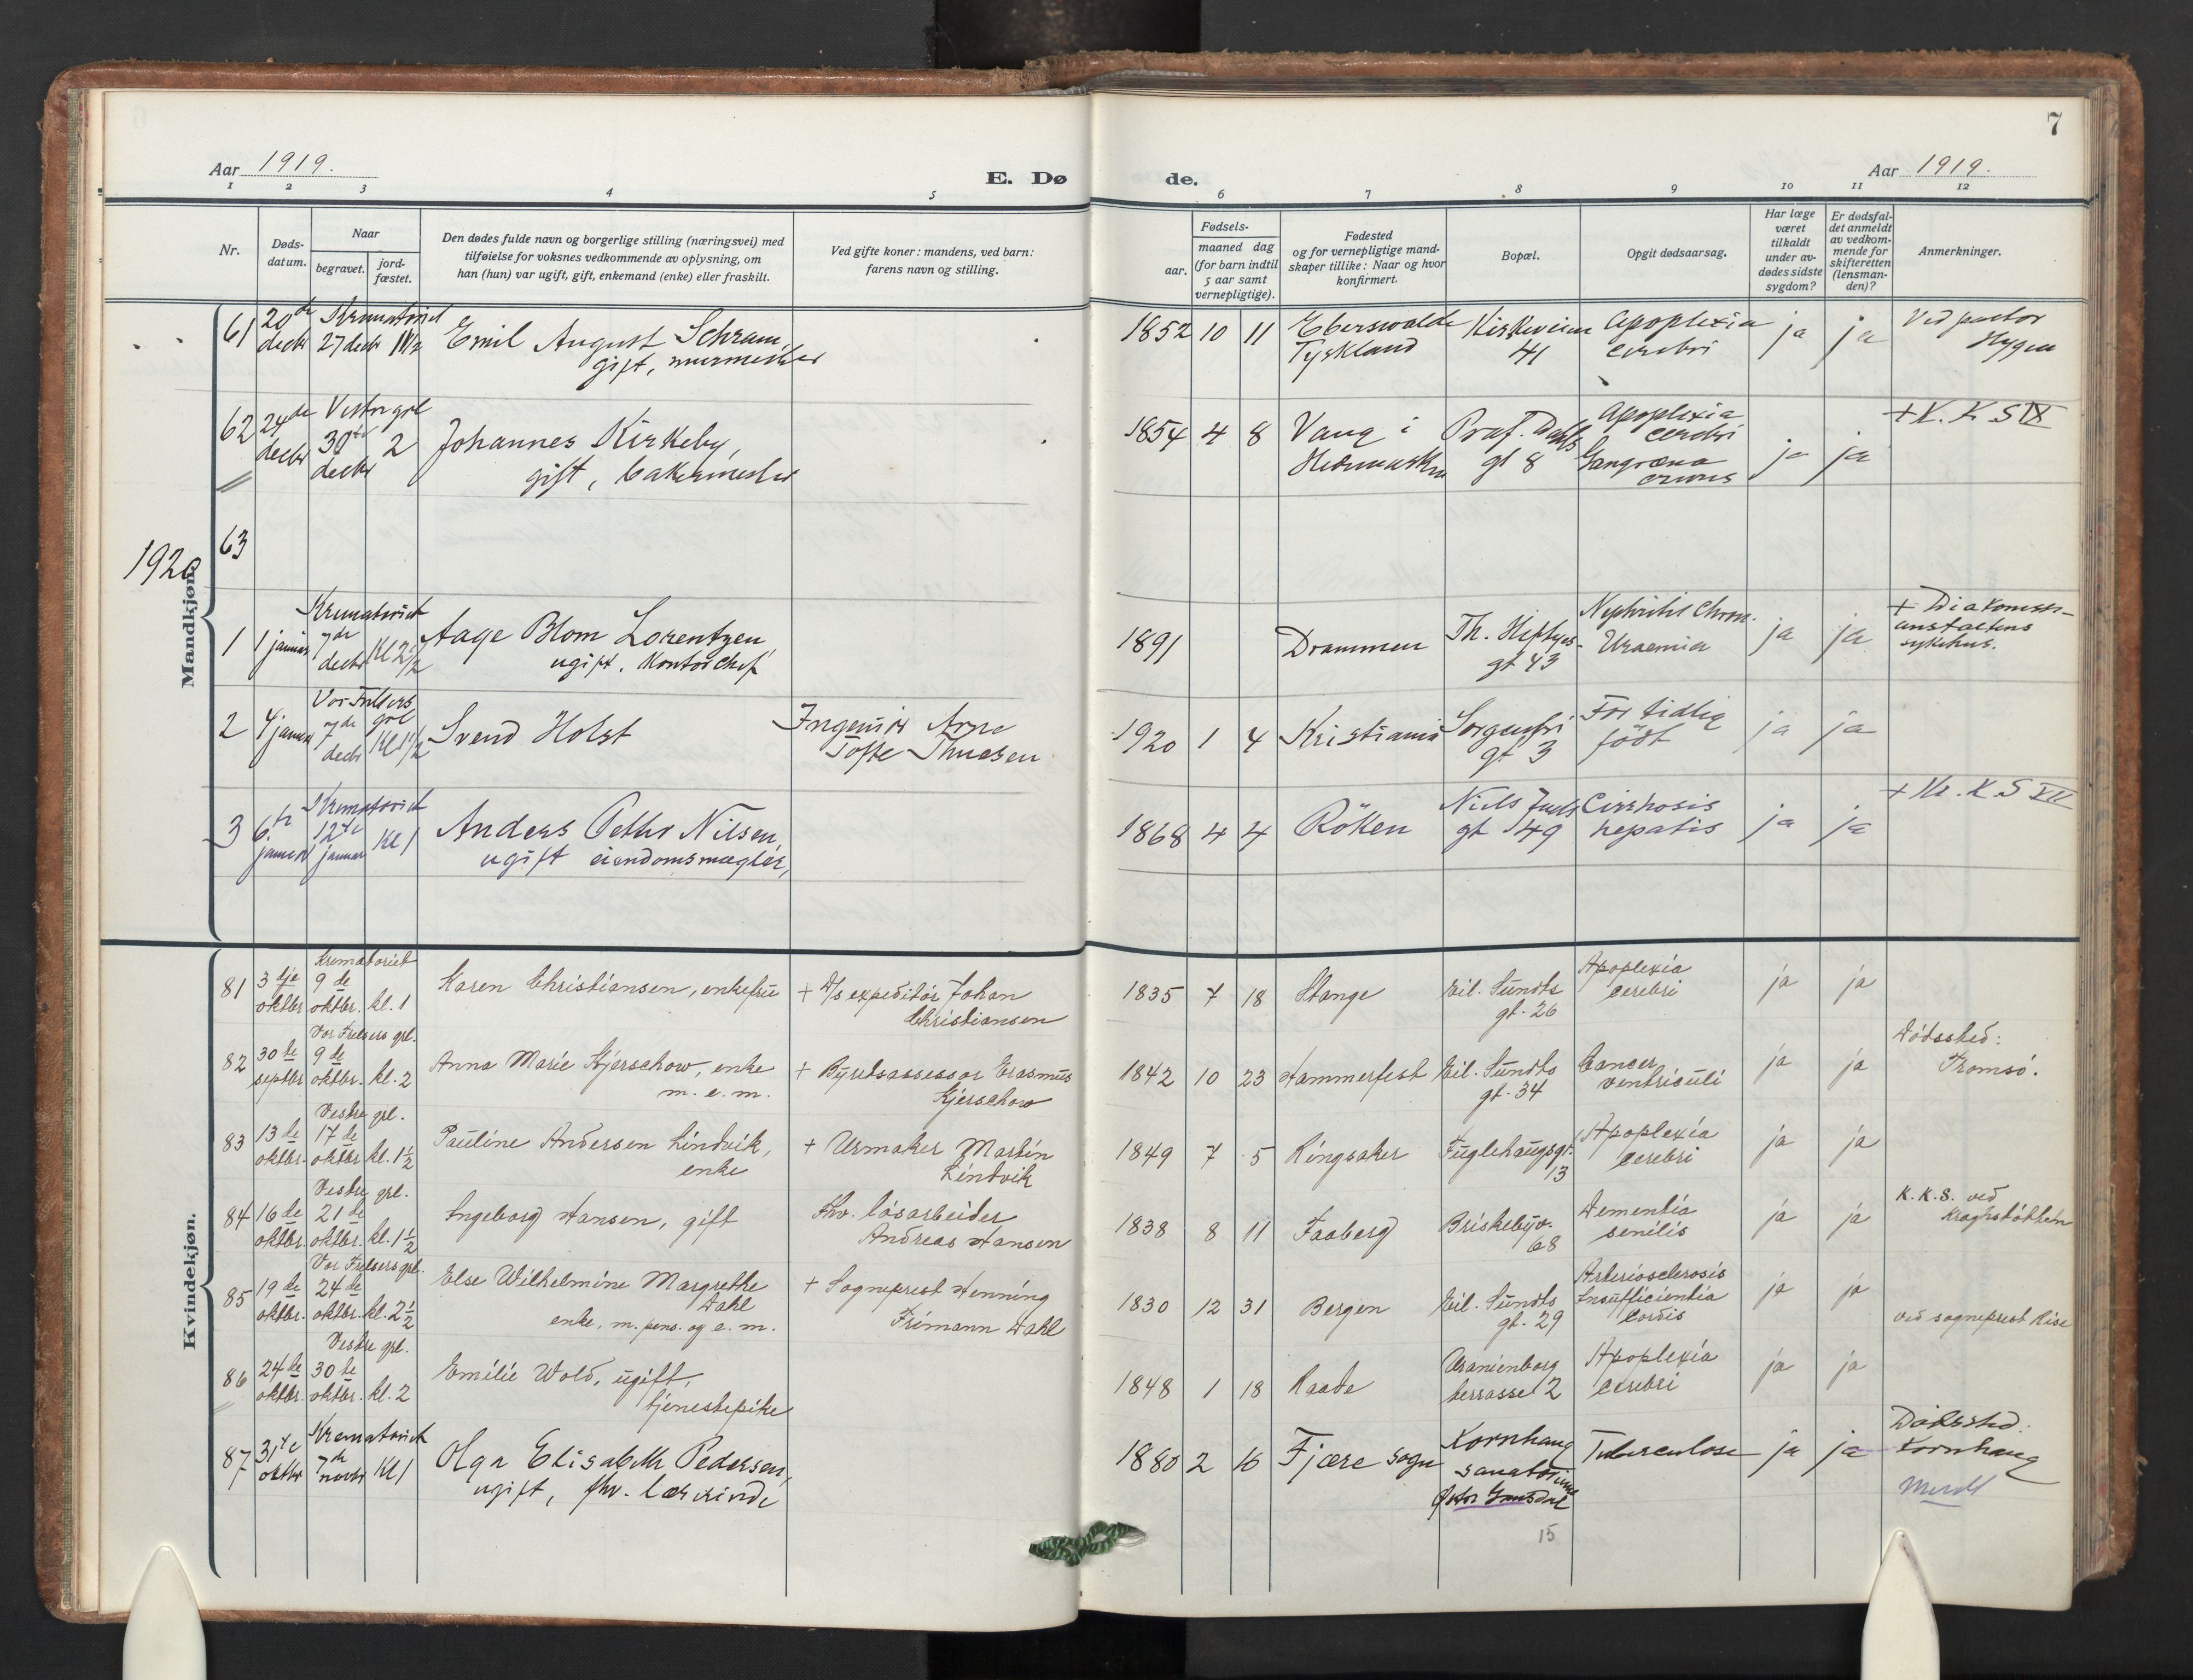 7
Aar 1919.
E. Dø
de.
Aar 1919.
1 2 3 4 5 6 7 8 9 10 11 12
Nr.
Døds-
datum.
Naar
begravet.
jord-
fæstet.
Den dødes fulde navn og borgerlige stilling (næringsvei) med
tilføielse for voksnes vedkommende av oplysning, om
han (hun) var ugift, gift, enkemand (enke) eller fraskilt.
Ved gifte koner: mandens, ved barn:
farens navn og stilling.
Fødsels-
aar.
maaned dag
(for barn indtil
5 aar samt
vernepligtige).
Fødested
og for vernepligtige mand-
skaper tillike: Naar og hvor
konfirmert.
Bopæl.
Opgit dødsaarsag.
Har læge
været
tilkaldt
under av-
dødes sidste
sygdom?
Er dødsfal-
det anmeldt
av vedkom-
mende for
skifteretten
(lensman-
den)?
Anmerkninger.
Mandkjøn.
61 20de decbr Krematoriet 27 decbr Emil August Schram, gift, murmester 1852 10 11 Eberswalde Tyskland Kirkeveien 41 Apoplexia cerebri ja ja Ved pastor Hygen
62 24de decbr Vestre grl 30te decbr 2 Johannes Kirkeby, gift, bakermester 1854 4 8 Vang i Hedemarken Prof. Dahls gt 8 Apoplexia cerebri Gangræna cruris ja ja + K. K S IX
63
1920
1 1 januar Krematoriet 7de decbr Kl 2 1/2 Aage Blom Lorentzen ugift. Kontorchef 1891 Drammen Th. Heftyes- gt 43 Nephritis Chron. Uraemia ja ja + Diakoniss- anstaltens sykehus.
2 4 januar Vor Frelsers grl 7de decbr Kl 1 1/2 Svend Holst Ingeniør Arne Tofte Thuesen 1920 1 4 Kristiania Sorgenfri gt 3 For tidlig født ja ja
3 6te januar Krematoriet 12te januar Kl 1 Anders Petter Nilsen, ugift eiendomsmægler, 1868 4 4 Röken Niels Juels gt 49 Cirrhosis hepatis ja ja + Kr. K S
Kvindekjøn.
81 3dje oktbr Krematoriet 9de oktbr. kl. 1 Karen Christiansen, enkefrue + D/s expeditör Johan Christiansen 1835 7 18 Stange Eil. Sundts gt. 26 Apoplexia cerebri ja ja
82 30te septbr Vor Frelsers grl. 9de oktbr. kl. 2 Anna Marie Kjerschow, enke m. e. m. + Byretsassessor Erasmus Kjerschow 1842 10 23 Hammerfest Eil. Sundts gt. 34 Cancer ventriculi ja ja Dödssted: Tromsö.
83 13de oktbr. Vestre grl. 17de oktbr kl. 1 1/2 Pauline Andersen Lindvik, enke + Urmaker Martin Lindvik 1849 7 5 Ringsaker Fuglehaugsgt. 13 Apoplexia cerebri ja ja
84 16de oktbr. Vestre grl. 21de oktbr. kl. 1 1/2 Ingeborg Hansen, gift Fhv. lösarbeider Andreas Hansen 1838 8 11 Faaberg Briskebyv. 68 Dementia senilis ja ja K. K. S. ved Kraghstötten
85 19de oktbr. Vor Frelsers grl. 24de oktbr. kl. 2 1/2 Else Wilhelmine Margrethe Dahl enke, m. pens. og e. m. + Sogneprest Henning Frimann Dahl 1830 12 31 Bergen Eil. Sundts gt. 29 Arteriosclerosis Insufficientia cordis ja ja ved sogneprest Rise
86 24de oktbr. Vestre grl. 30te oktbr. kl. 2 Emilie Wold, ugift, tjenestepike 1848 1 18 Raade Uranienborg terrasse 2 Apoplexia cerebri ja ja
87 31te oktbr Krematoriet 7de novbr Kl 1 Olga Elisabeth Pedersen, ugift, fhv. lærerinde 1880 2 16 Fjære sogn Kornhaug sanatorium Østre Gausdal Tuberculose ja ja Dödssted: Kornhaug
15